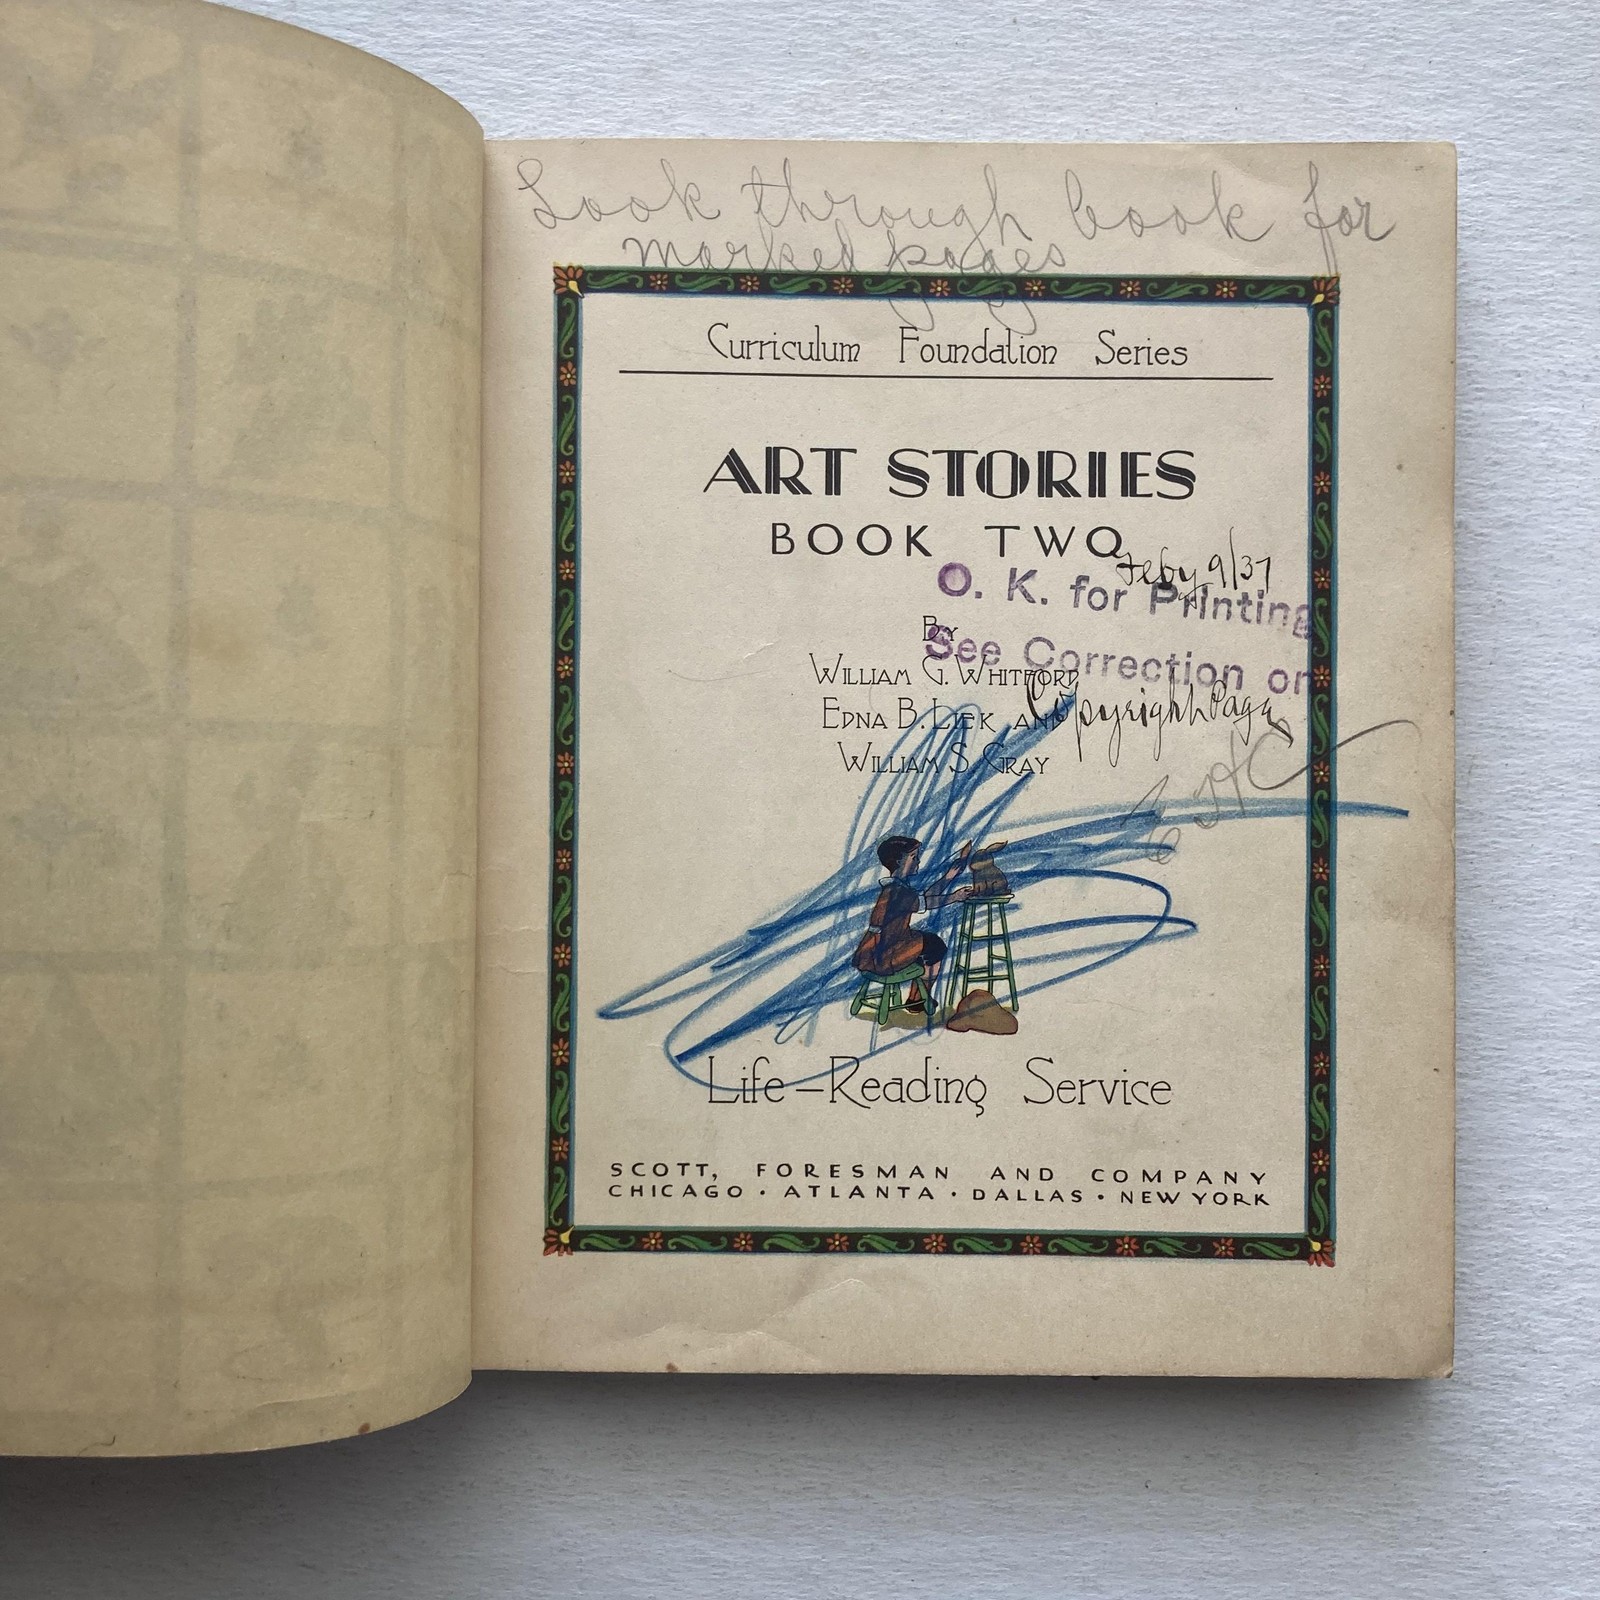 Look through book for
marked pages
Curriculum Foundation Series
ART STORIES
BOOK TWO
Feby 9/37
O. K. for Printing
By
See Correction on
William G. Whitford
Copyright Page
Edna B. Liek and
William S. Gray
Life-Reading Service
SCOTT, FORESMAN AND COMPANY
CHICAGO · ATLANTA · DALLAS · NEW YORK